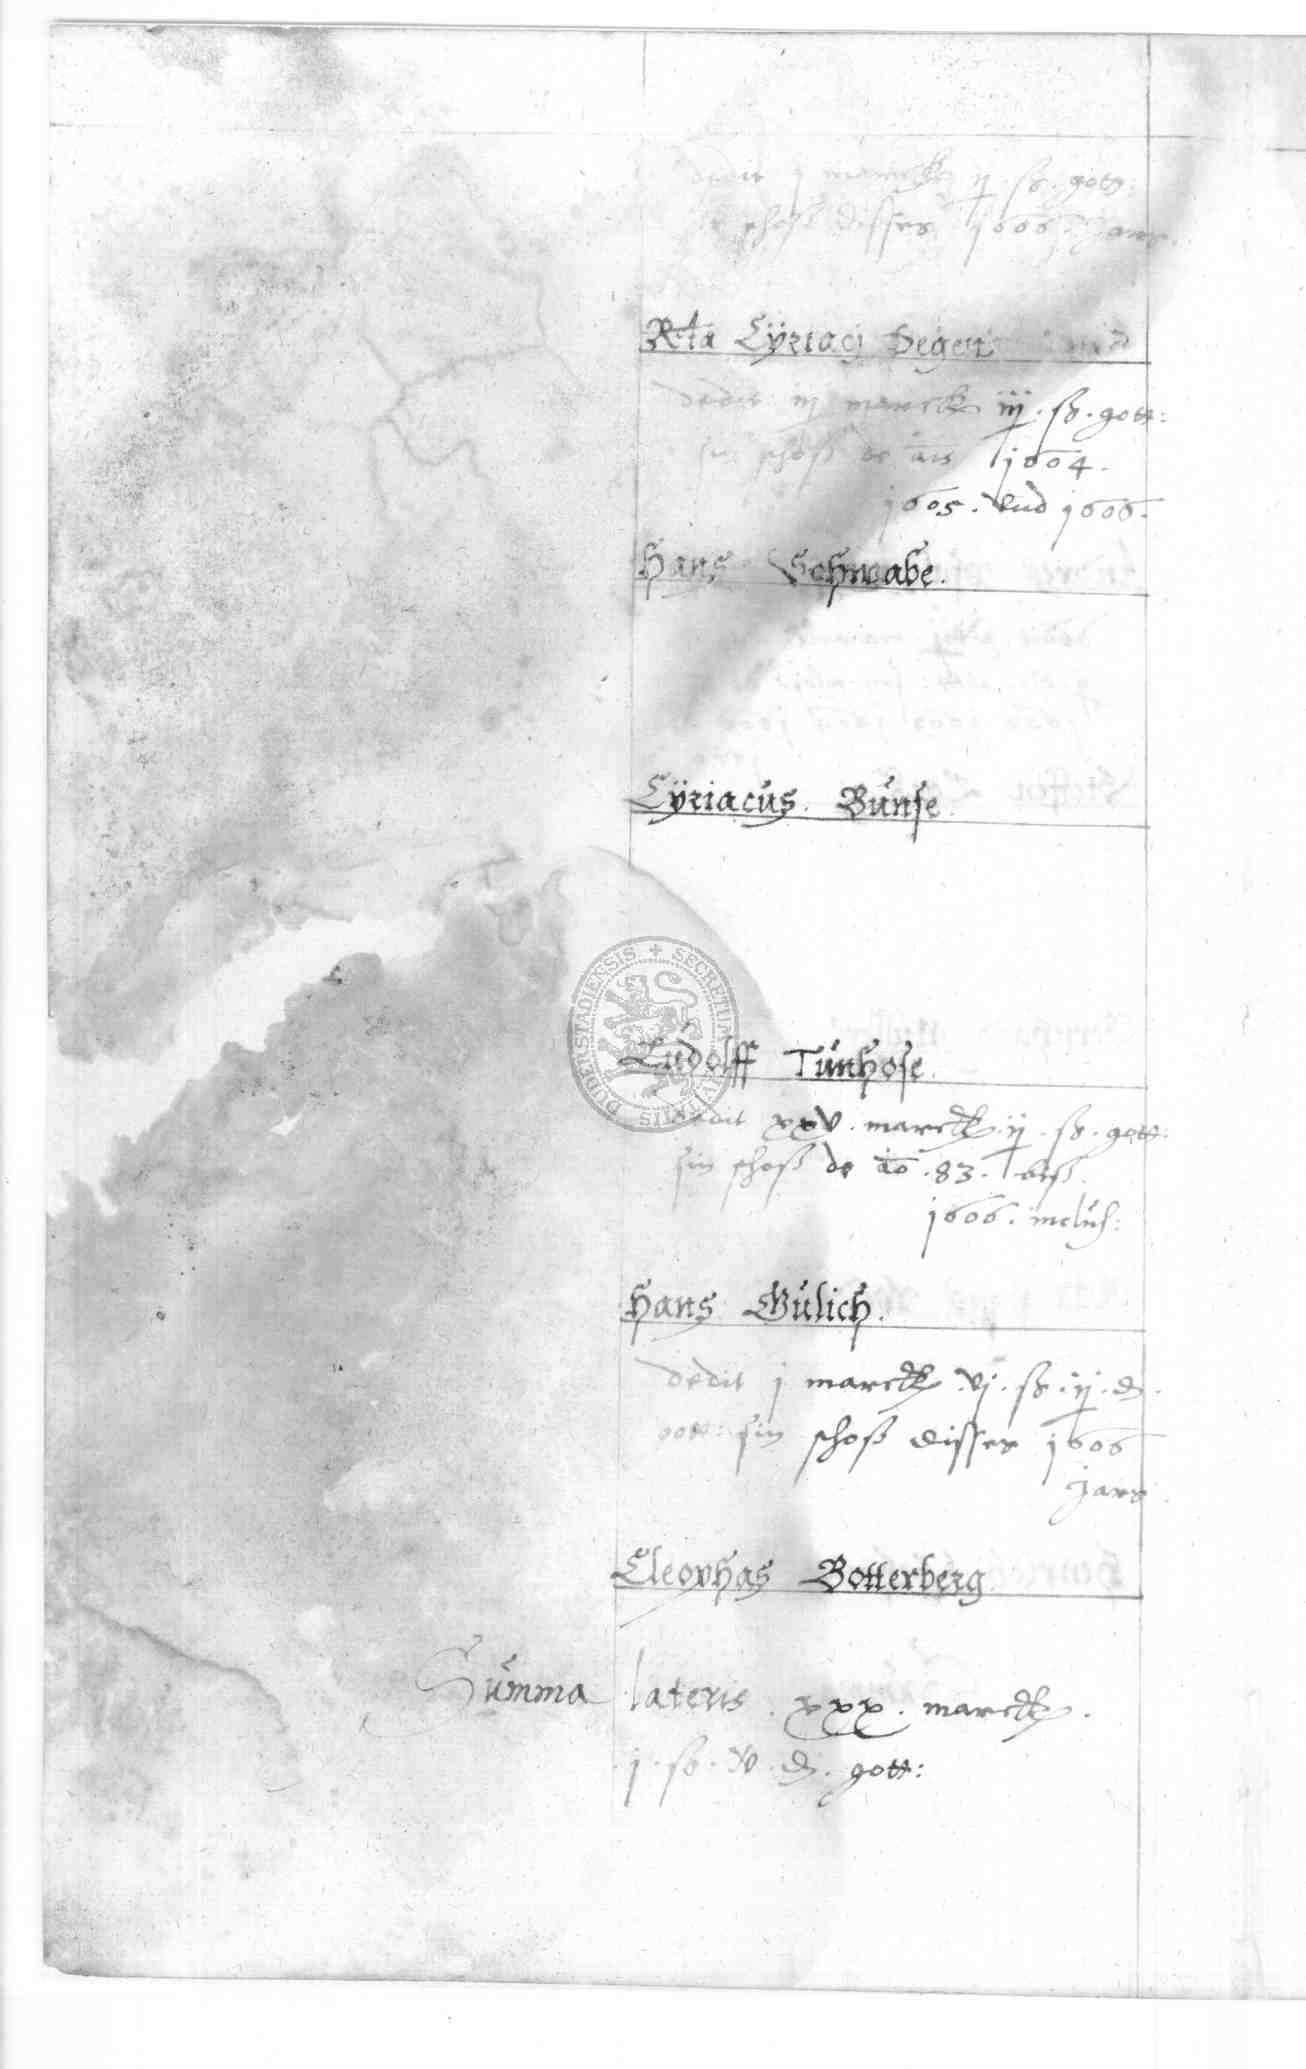 dedit j marck ij ß. gott:
schoß disses 1606 Jars
Rta Cÿriacj Degen
dedit iij marck iij. ß. gott:
sin schoß de ais 1604.
1605. vnd 1606.
Hans Schwabe.
Cÿriacus. Bunse.
Ludolff Tunhose.
dedit xxv. marck. ij. ß. gott:
sin schoß de ao .83. biß
1606. inclus:
Hans Gulich.
dedit j marck. vj. ß. ij. d.
gott: sin schoß disses 1606
Jars.
Cleophas Botterberg
Summa lateris. xxx. marck.
j. ß. v. d. gott:
SECRETUM CIVITATIS DUDERSTADIENSIS